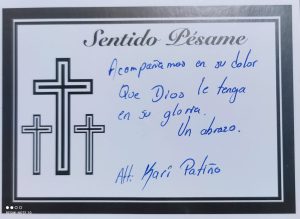 Sentido Pésame
Acompañamos en su dolor
Que Dios le tenga
en su gloria.
Un abrazo.
Att. Kari Patiño